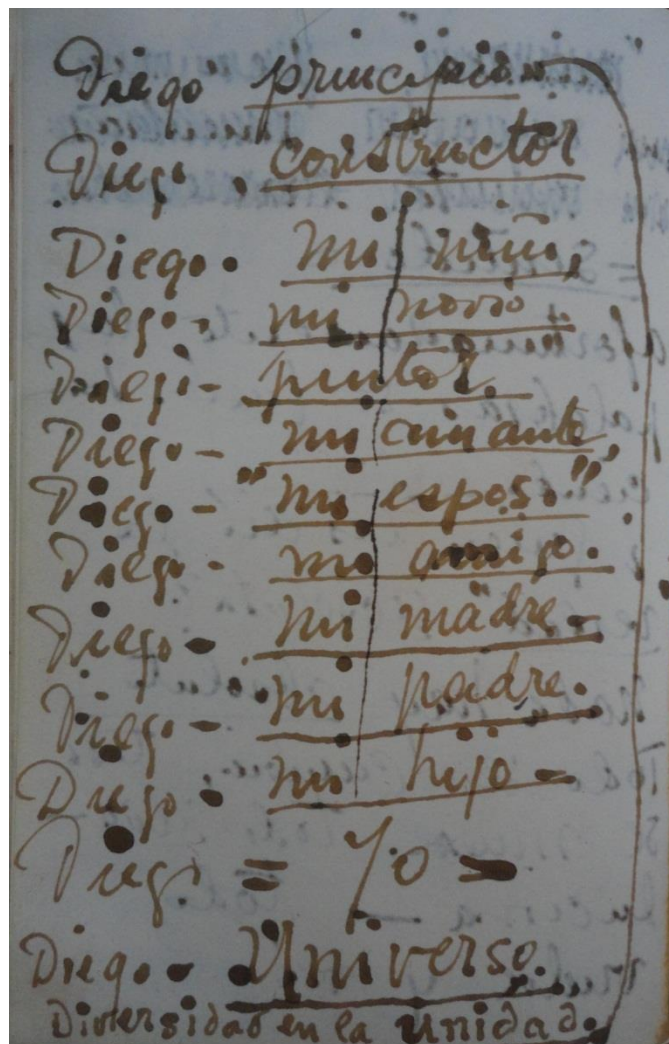 Diego principio
Diego . constructor
Diego. mi niño,
Diego - mi novio.
Diego - pintor.
Diego - mi amante
Diego - "mi esposo."
Diego - mi amigo.
Diego - mi madre -
Diego - mi padre.
Diego - mi hijo -
Diego = Yo =
Diego - Universo.
Diversidad en la unidad.